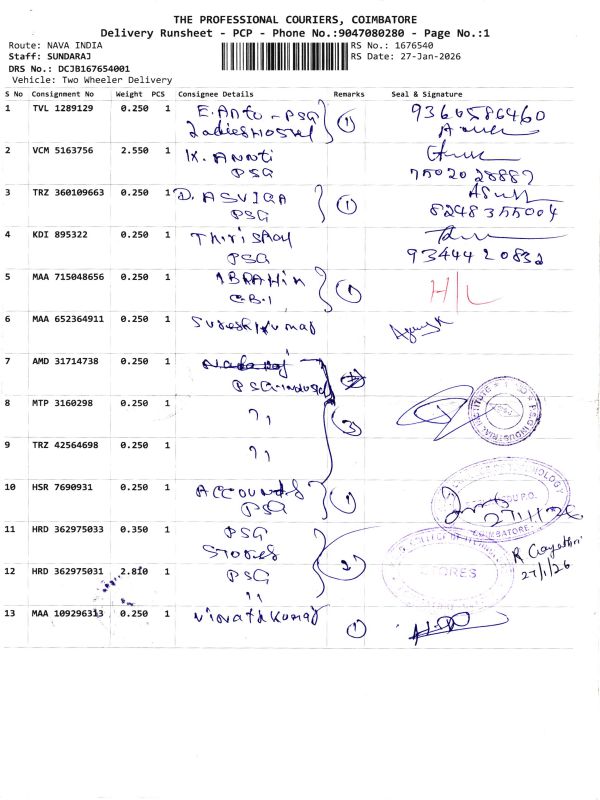 THE PROFESSIONAL COURIERS, COIMBATORE
Delivery Runsheet - PCP - Phone No.:9047080280 - Page No.:1
Route: NAVA INDIA
RS No.: 1676540
Staff: SUNDARAJ
RS Date: 27-Jan-2026
DRS No.: DCJB167654001
Vehicle: Two Wheeler Delivery
S No Consignment No Weight PCS Consignee Details Remarks Seal & Signature
1 TVL 1289129 0.250 1 E. Anto - PSG 1
Ladies Hostel
2 VCM 5163756 2.550 1 K. Annti
PSG
75020 28887
3 TRZ 360109663 0.250 1 D. ASVIGA 1
PSG
8248355004
4 KDI 895322 0.250 1
PSG
93444 20832
5 MAA 715048656 0.250 1 IBRAHim 1 H/L
G.B.I
6 MAA 652364911 0.250 1 Sureshkumar
7 AMD 31714738 0.250 1
PSG-Indust
8 MTP 3160298 0.250 1 ,, 3
9 TRZ 42564698 0.250 1 ,,
10 HSR 7690931 0.250 1 Accounts 1
PSG
27/1/26
11 HRD 362975033 0.350 1 PSG
Stores 2
R Gayathri
27/1/26
12 HRD 362975031 2.810 1 PSG
,,
STORES
13 MAA 109296313 0.250 1 Vinothkumar 1